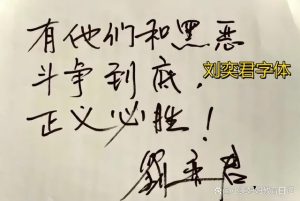 有他们和黑恶
斗争到底，
正义必胜！
劉奕君
刘奕君字体